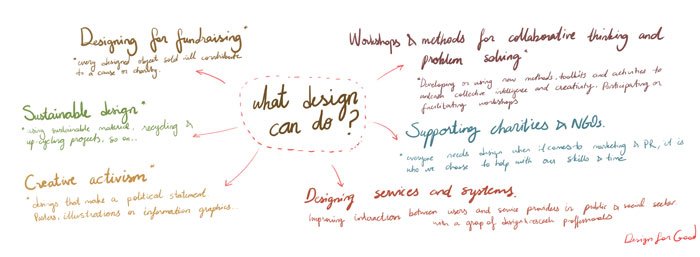 Designing for fundraising"
"every designed object sold will contribute
to a cause or charity.
Sustainable design"
"using sustainable material, recycling &
up-cycling projects, so on..
Creative activism"
"designs that make a political statement.
Posters, illustrations or information graphics.
what design
can do?
Workshops & methods for collaborative thinking and
problem solving"
"Developing or using new methods, toolkits and activities to
unleash collective intelligence and creativity. Participating or
facilitating workshops
Supporting charities & NGOs.
"everyone needs design when it comes to marketing & PR, it is
who we choose to help with our skills & time
Designing services and systems.
Improving interaction between users and service providers in public & social sector
with a group of design research professionals
Design for Good